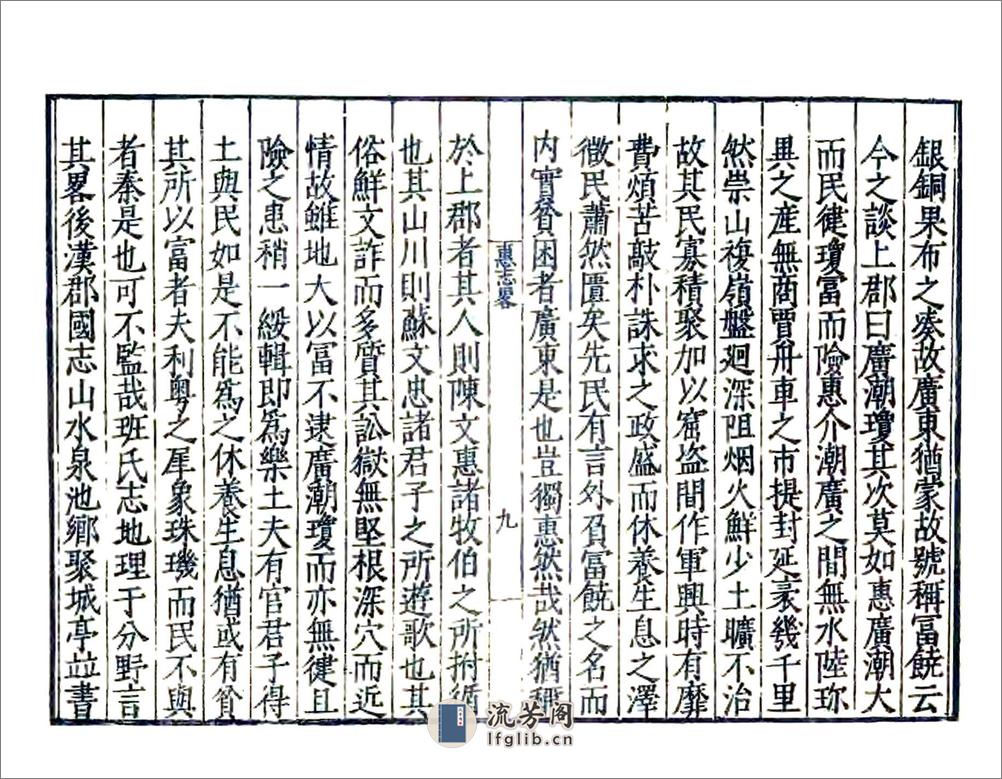 銀銅果布之湊故廣東猶蒙故號稱富饒云
今之談上郡曰廣潮瓊其次莫如惠廣潮大
而民健瓊富而險惠介潮廣之間無水陸珎
異之産無商賈舟車之市提封延袤幾千里
然崇山複嶺盤廻深阻烟火鮮少土曠不治
故其民寡積聚加以窟盗間作軍興時有靡
費煩苦敲朴誅求之政盛而休養生息之澤
微民蕭然匱矣先民有言外負富饒之名而
内實貧困者廣東是也豈獨惠然哉然猶稱
惠志畧
九
於上郡者其人則陳文惠諸牧伯之所拊循
也其山川則蘇文忠諸君子之所遊歌也其
俗鮮文詐而多質其訟獄無堅根深穴而近
情故雖地大以富不逮廣潮瓊而亦無健且
險之患稍一綏輯即爲樂土夫有官君子得
土與民如是不能爲之休養生息猶或有貧
其所以富者夫利粤之犀象珠璣而民不與
者秦是也可不監哉班氏志地理于分野言
其畧後漢郡國志山水泉池鄉聚城亭竝書
流芳阁
lfglib.cn